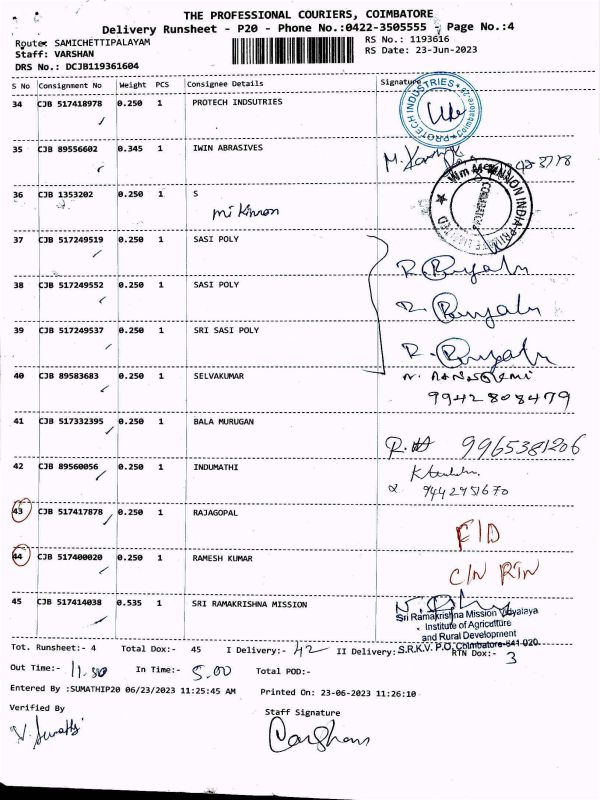 THE PROFESSIONAL COURIERS, COIMBATORE
Delivery Runsheet - P20 - Phone No.:0422-3505555 - Page No.:4
Route: SAMICHETTIPALAYAM
RS No.: 1193616
Staff: VARSHAN
RS Date: 23-Jun-2023
DRS No.: DCJB119361604
S No Consignment No Weight PCS Consignee Details Signature
34 CJB 517418978 0.250 1 PROTECH INDSUTRIES
PROTECH INDUSTRIES
35 CJB 89556602 0.345 1 IWIN ABRASIVES
36 CJB 1353202 0.250 1 S
37 CJB 517249519 0.250 1 SASI POLY
38 CJB 517249552 0.250 1 SASI POLY
39 CJB 517249537 0.250 1 SRI SASI POLY
40 CJB 89583683 0.250 1 SELVAKUMAR
9942808479
41 CJB 517332395 0.250 1 BALA MURUGAN
9965381206
42 CJB 89560056 0.250 1 INDUMATHI
43 CJB 517417878 0.250 1 RAJAGOPAL
44 CJB 517400020 0.250 1 RAMESH KUMAR
C/N RTN
45 CJB 517414038 0.535 1 SRI RAMAKRISHNA MISSION
Sri Ramakrishna Mission Vidyalaya
Institute of Agriculture
and Rural Development
S.R.K.V. P.O. Coimbatore-641 020.
Tot. Runsheet:- 4 Total Dox:- 45 I Delivery:- 42 II Delivery: RTN Dox:- 3
Out Time:- 11.30 In Time:- 5.00 Total POD:-
Entered By :SUMATHIP20 06/23/2023 11:25:45 AM Printed On: 23-06-2023 11:26:10
Verified By
Staff Signature
Varshan